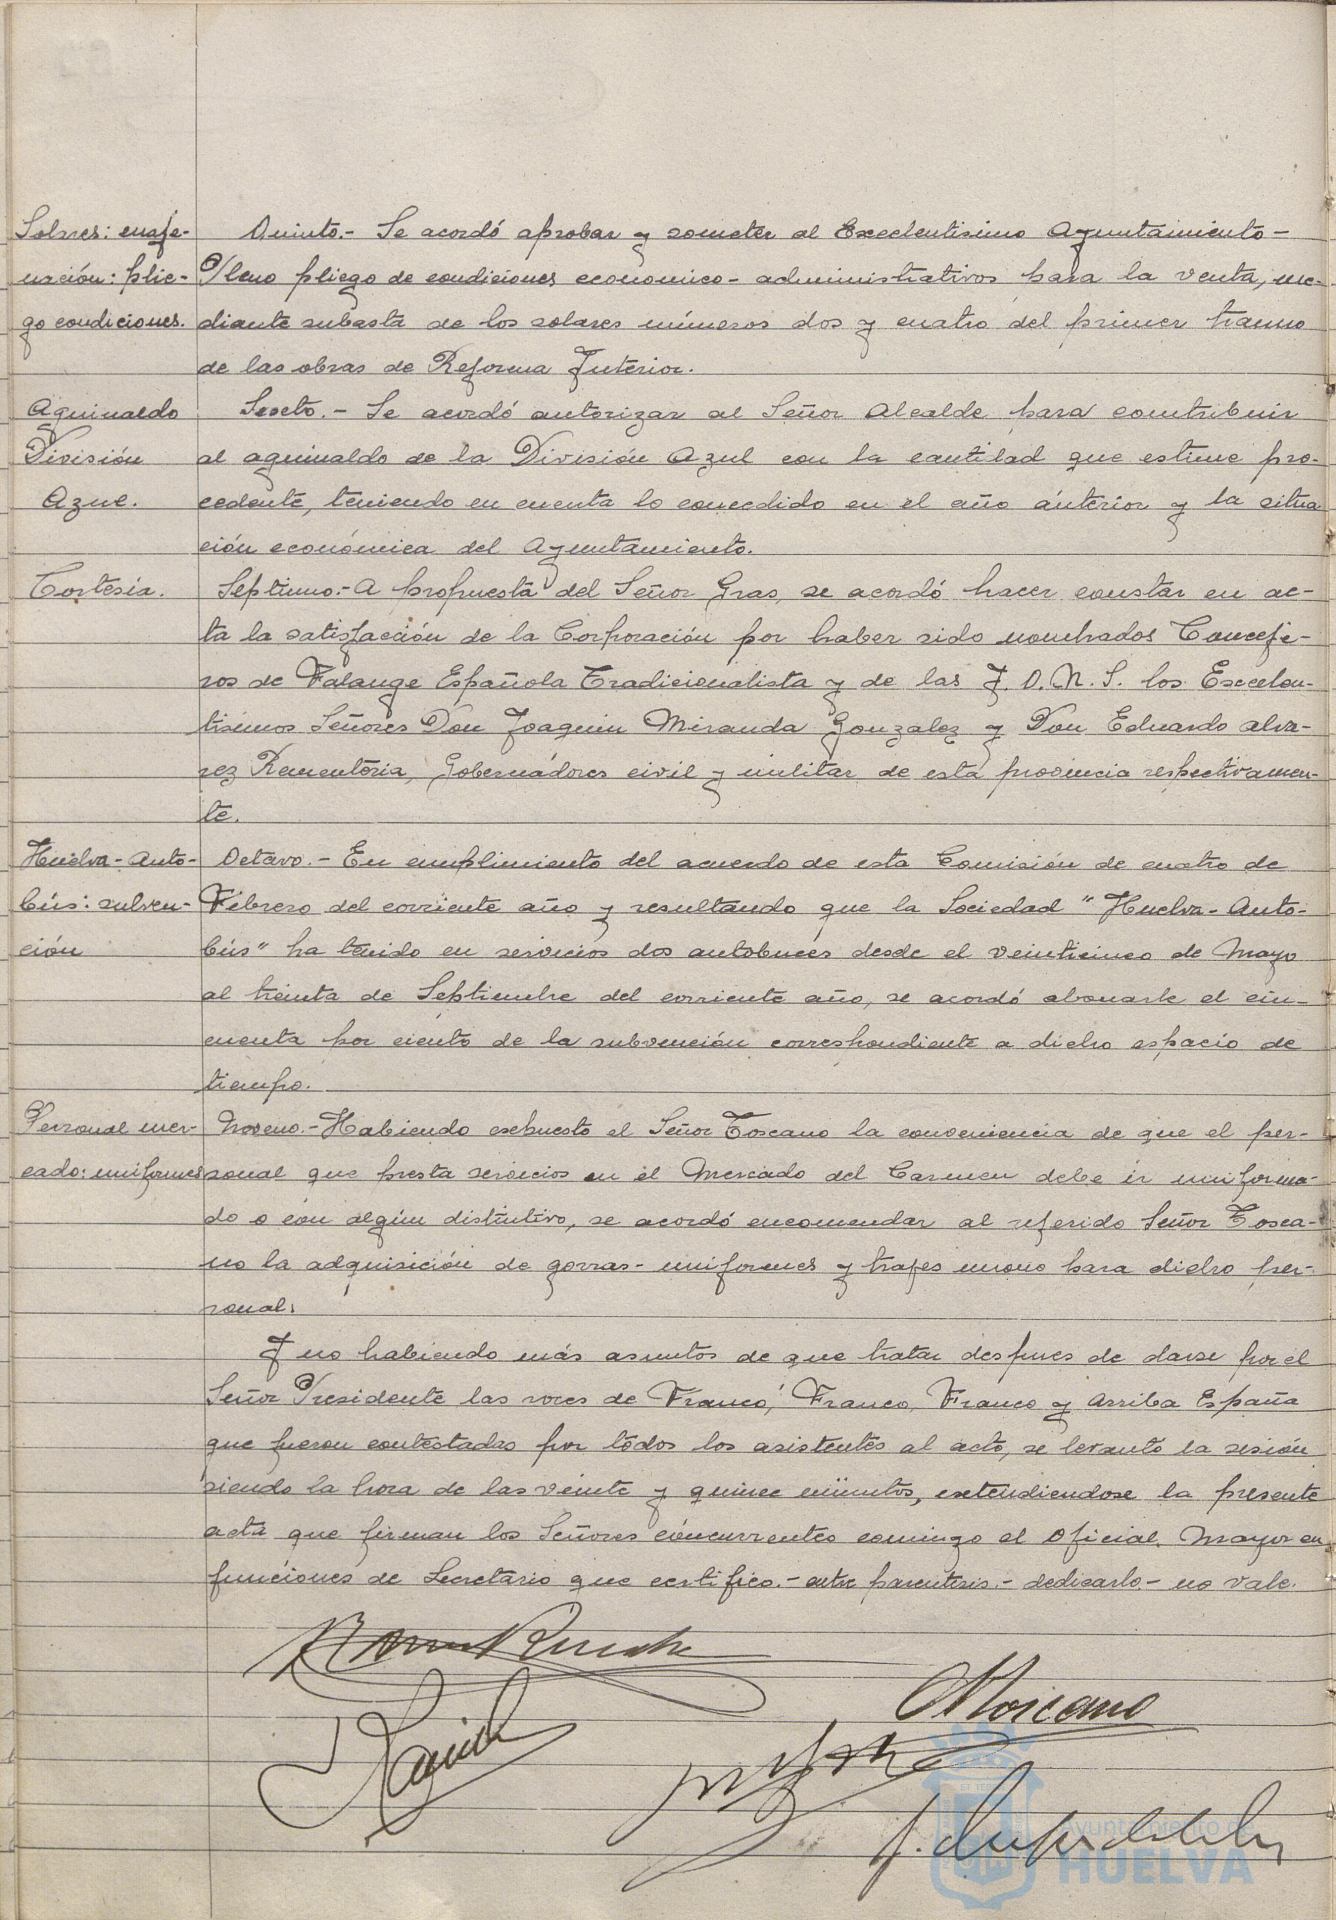 Solares: enaje-
nación: plie-
go condiciones.
Quinto.- Se acordó aprobar y someter al Excelentisimo Ayuntamiento-
Pleno pliego de condiciones economico-administrativos para la venta, me-
diante subasta de los solares números dos y cuatro del primer tramo
de las obras de Reforma Interior.
Aguinaldo
División
Azul.
Sexto.- Se acordó autorizar al Señor Alcalde para contribuir
al aguinaldo de la División Azul con la cantidad que estime pro-
cedente, teniendo en cuenta lo concedido en el año anterior y la situa
ción económica del Ayuntamiento.
Cortesia.
Septimo.- A propuesta del Señor Gras, se acordó hacer constar en ac-
ta la satisfacción de la Corporación por haber sido nombrados Conceje-
ros de Falange Española Tradicionalista y de las J.O.N.S. los Excelen-
tisimos Señores Don Joaquin Miranda Gonzalez y Don Eduardo Alva-
rez Rementeria, Gobernadores civil y militar de esta provincia respectivamen-
te.
Huelva-Auto-
bús: subven-
ción
Octavo.- En cumplimiento del acuerdo de esta Comisión de cuatro de
Febrero del corriente año y resultando que la Sociedad "Huelva-Auto-
bús" ha tenido en servicios dos autobuses desde el veinticinco de Mayo
al treinta de Septiembre del corriente año, se acordó abonarle el cin-
cuenta por ciento de la subvención correspondiente a dicho espacio de
tiempo.
Personal mer-
cado: uniformes
Noveno.- Habiendo expuesto el Señor Toscano la conveniencia de que el per-
sonal que presta servicios en el Mercado del Carmen debe ir uniforma-
do o con algún distintivo, se acordó encomendar al referido Señor Tosca-
no la adquisición de gorras-uniformes y trajes mono para dicho per-
sonal.
Y no habiendo más asuntos de que tratar despues de darse por el
Señor Presidente las voces de Franco, Franco, Franco y Arriba España
que fueron contestadas por todos los asistentes al acto, se levantó la sesión
siendo la hora de las veinte y quince minutos, extendiendose la presente
acta que firman los Señores concurrentes conmigo el Oficial Mayor en
funciones de Secretario que certifico.- entre parentesis.- dedicarlo.- no vale.
Toscano
Ayuntamiento de
HUELVA